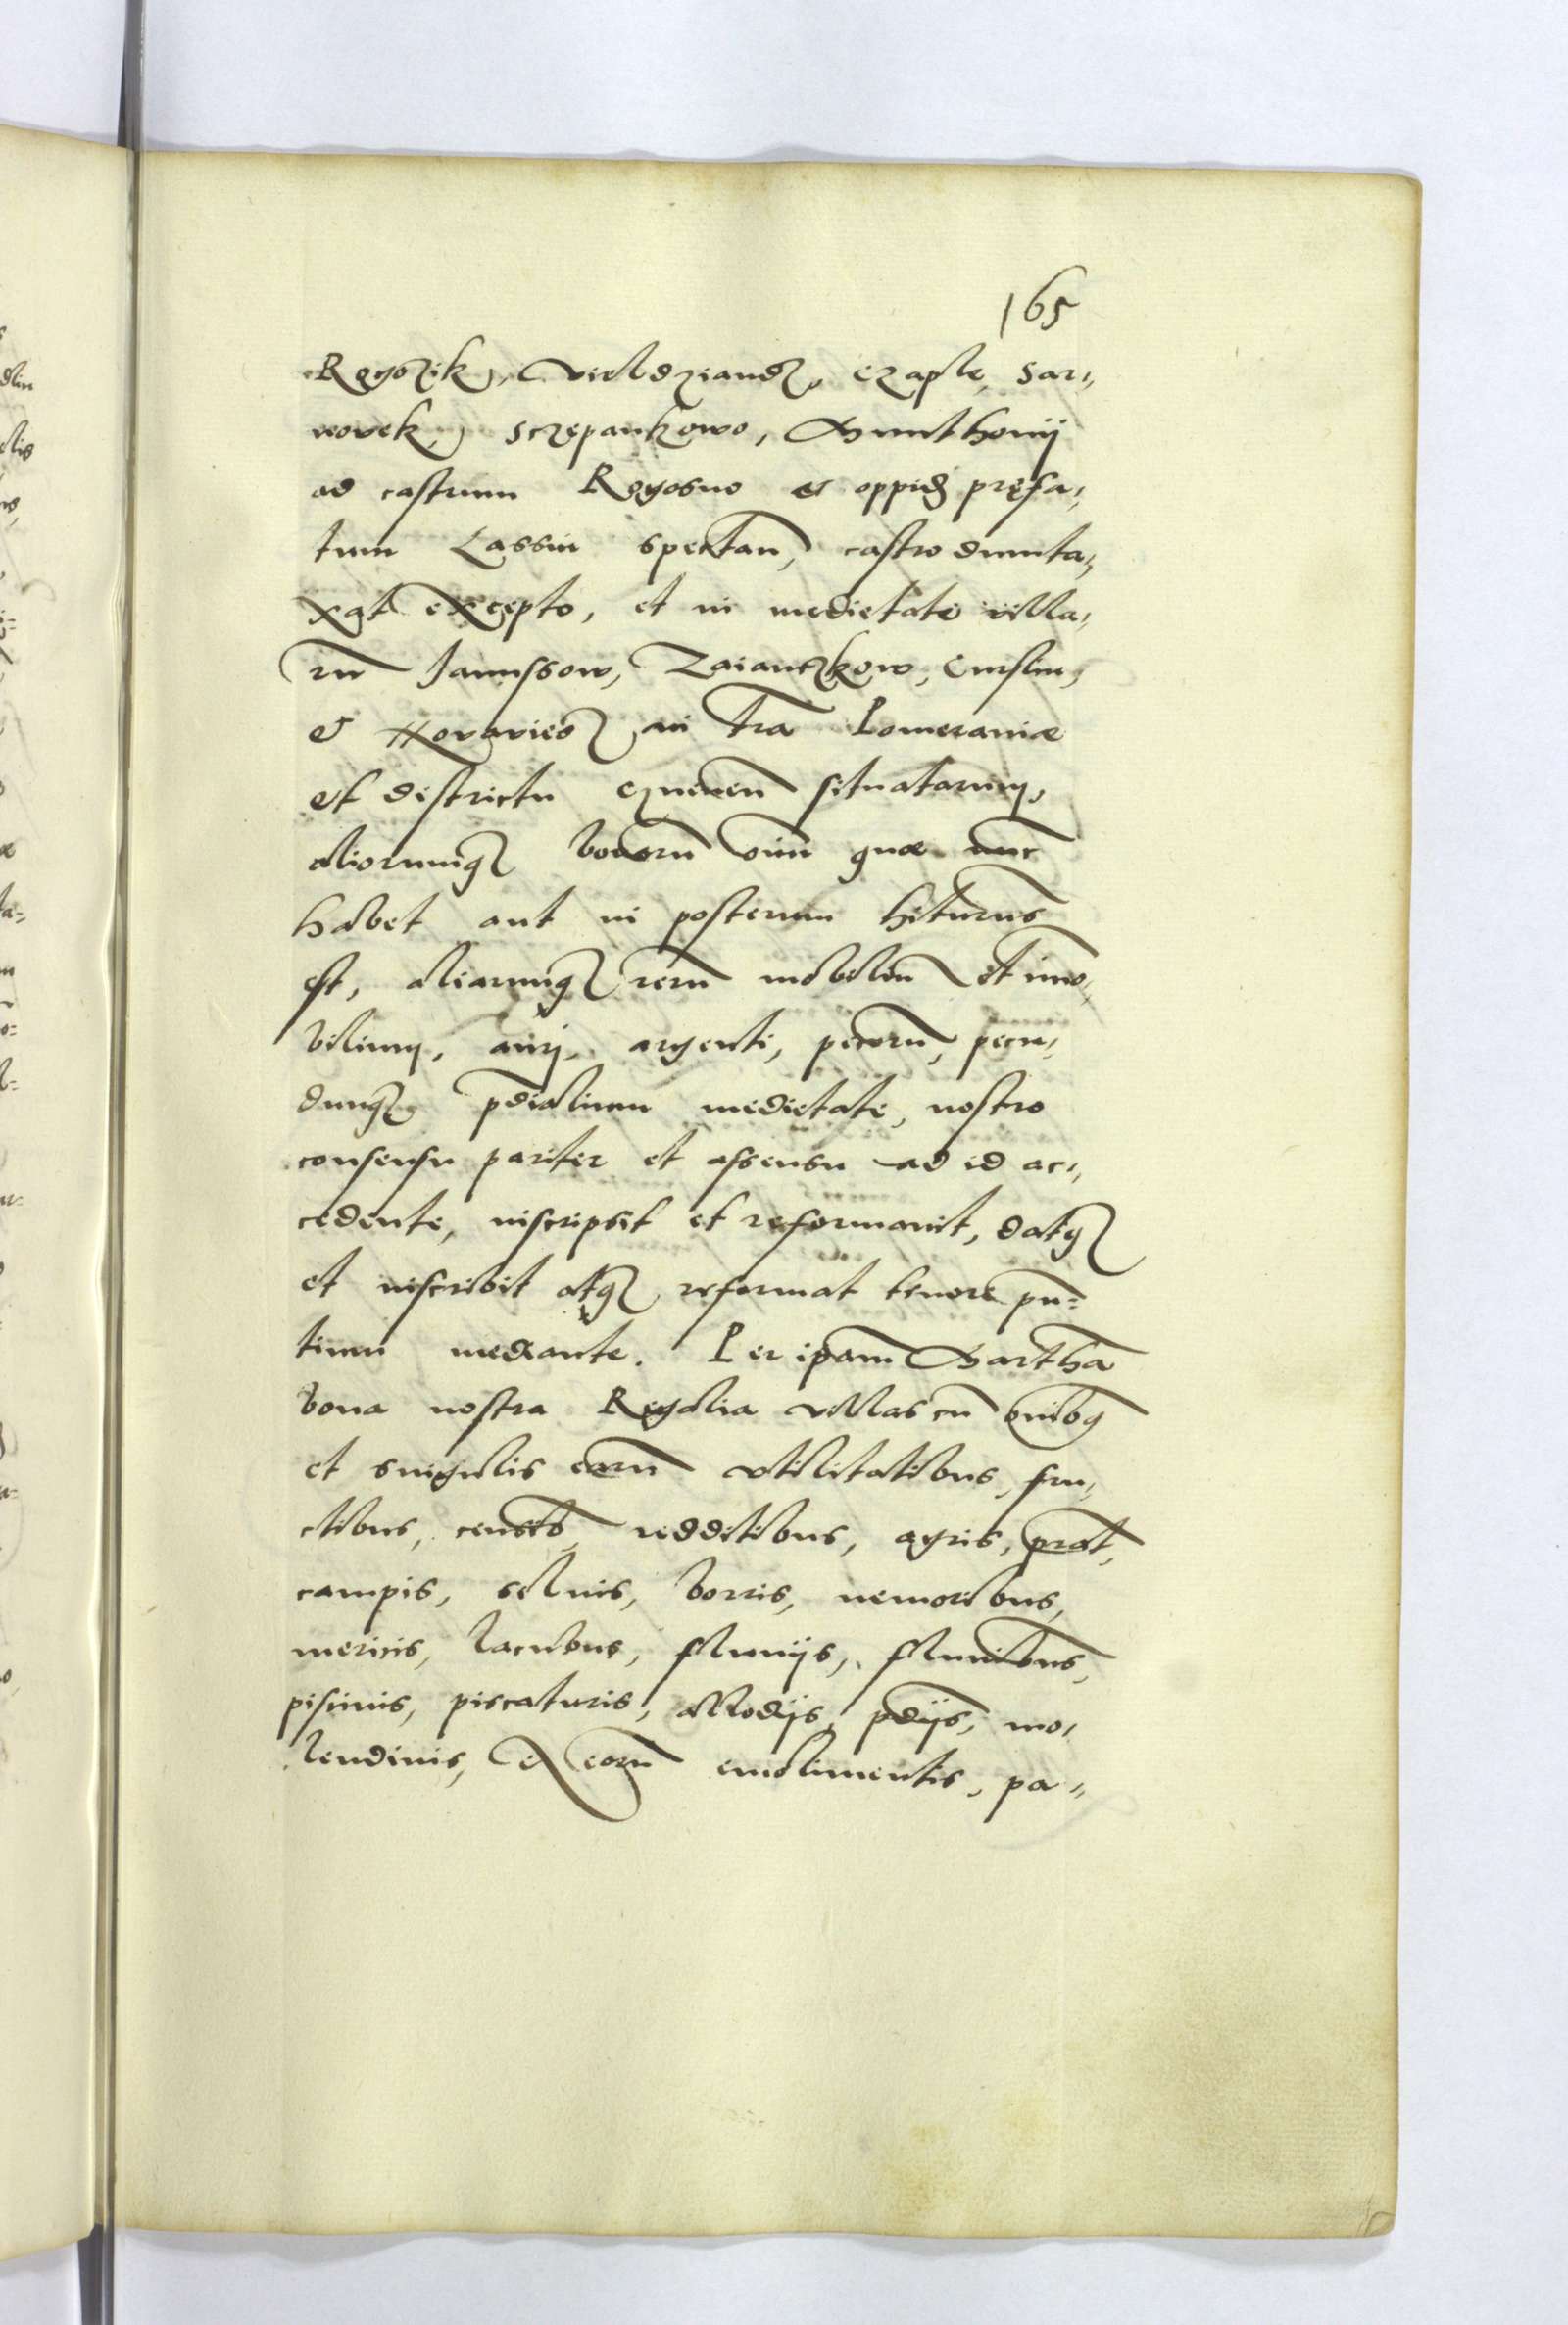 165
Rogozik, Vieldziandz, Czaple, Sar„
novek, Sczepankowo, Munthowij
ad castrum Rogosno et oppid pręfa„
tum Lassin spectan, castro dumta„
xat excepto, et in medietate villa„
rū Janussow, Zaianczkow, Cmslin,
et in t̄ra Pomeraniæ
et districtu situatarum,
aliorumq bonorū om̄iū quæ nunc
habet aut in posterum h̄iturus
est, aliarumq rerū mobiliū et immo„
bilium, auri, argenti, pecorū, pecu„
dumq p̄dialium medietate, nostro
consensu pariter et assensu ad id ac„
cedente, inscripsit et reformauit, datq
et inscribit atq reformat tenore pn̄=
tium mediante. Per ip̄am Martha
bona nostra Regalia villas cū om̄ibq
et singulis earū vtilitatibus, fru„
ctibus, censib, redditibus, agris, prat,
campis, siluis, borris, nemoribus,
mericis, lacubus, fluuijs, fluminibus,
piscinis, piscaturis, allodijs, p̄dijs, mo„
lendinis, et eorū emolimentis, pa„